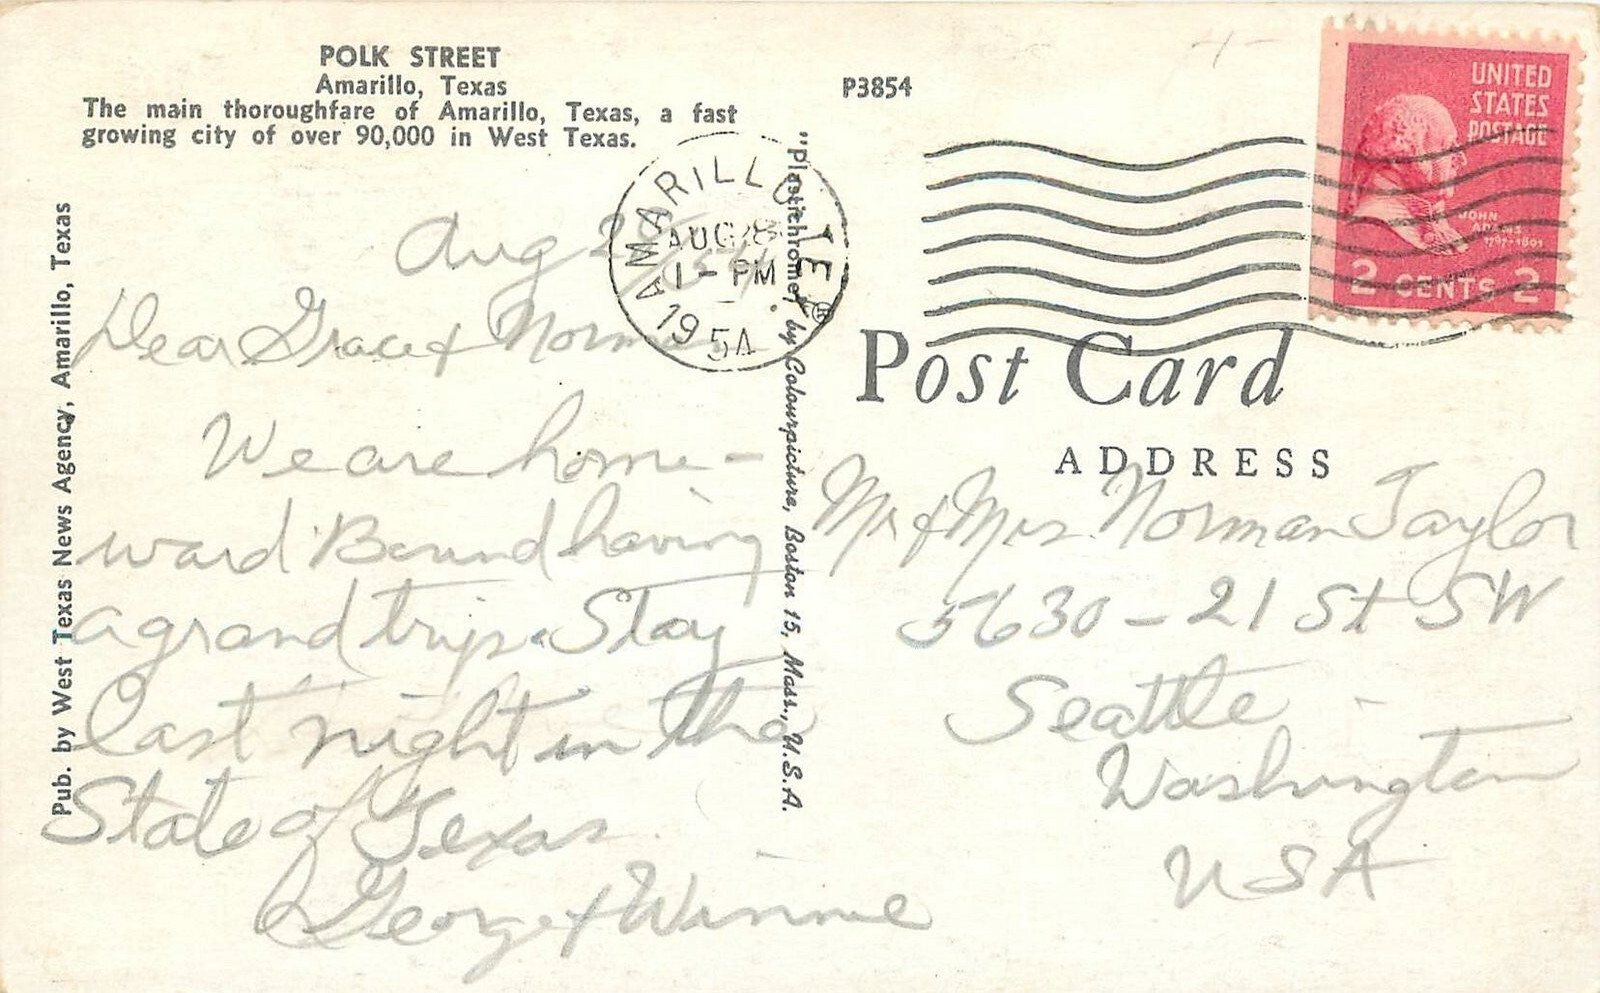 POLK STREET
Amarillo, Texas
The main thoroughfare of Amarillo, Texas, a fast
growing city of over 90,000 in West Texas.
P3854
UNITED
STATES
POSTAGE
JOHN
ADAMS
1797-1801
2 CENTS 2
AMARILLO TEX.
AUG 28
1 - PM
1954
Aug 28/54
Dear Grace & Norman
We are home-
ward Bound having
a grand trip. Stay
last night in the
State of Texas
George & Winnie
Pub. by West Texas News Agency, Amarillo, Texas
"Plastichrome"® by Colourpicture, Boston 15, Mass., U.S.A.
Post Card
ADDRESS
Mr & Mrs Norman Taylor
5630 - 21 St SW
Seattle
Washington
USA